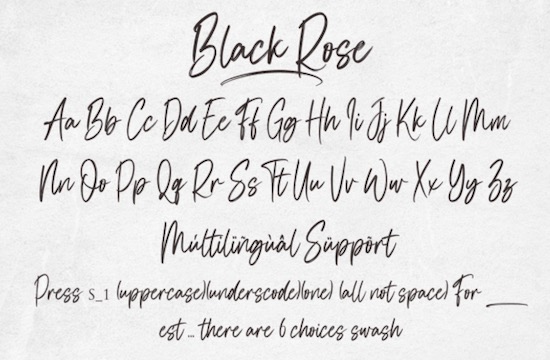 Black Rose
Aa Bb Cc Dd Ee Ff Gg Hh Ii Jj Kk Ll Mm
Nn Oo Pp Qq Rr Ss Tt Uu Vv Ww Xx Yy Zz
Múltilïìñgùâl Süppõrt
Press S_1 (uppercase)(underscode)(one) (all not space) for ___
est ... there are 6 choices swash